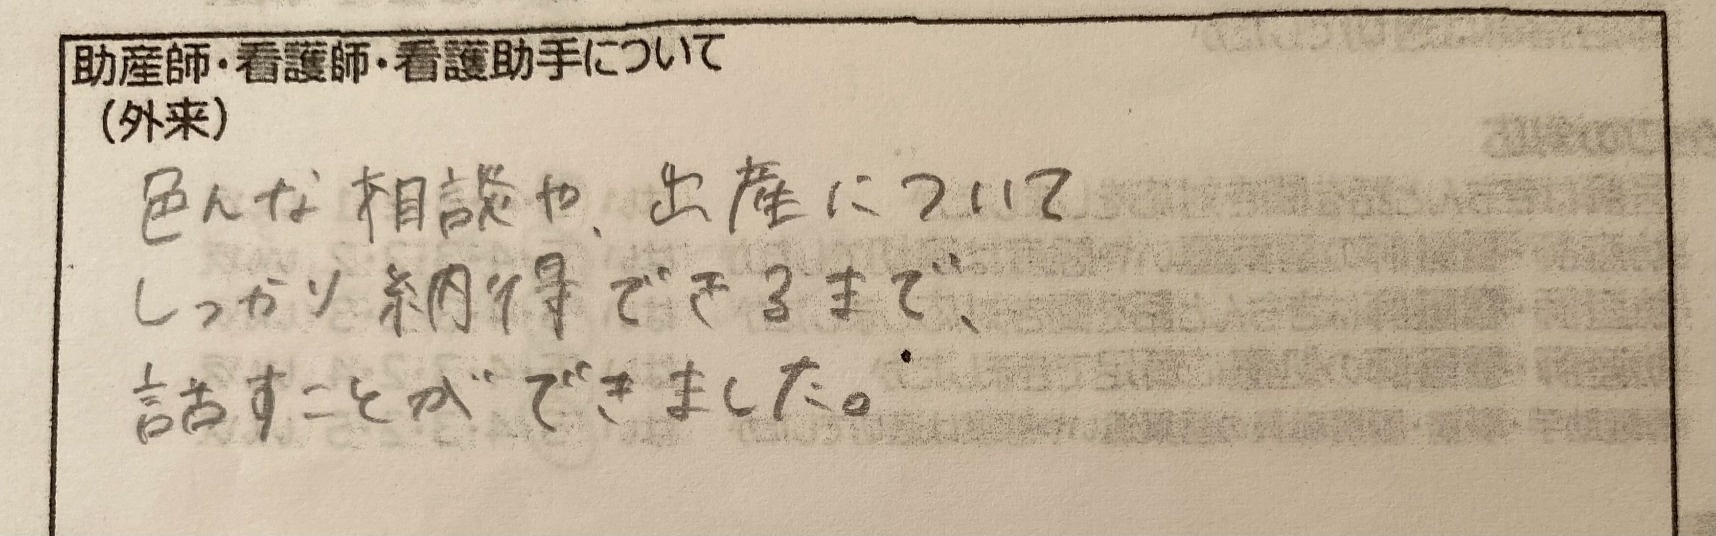 助産師・看護師・看護助手について
（外来）
色んな相談や、出産について
しっかり納得できるまで、
話すことができました。